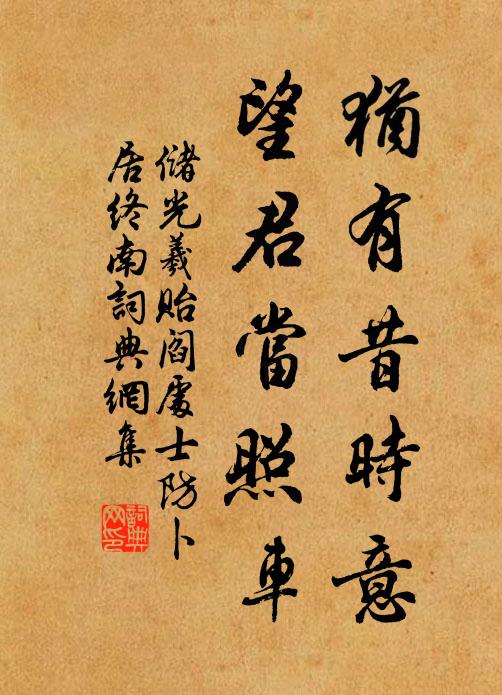 猶有昔時意
望君當照車
儲光羲貽閻處士防卜
居終南詞典網集
詞典網印